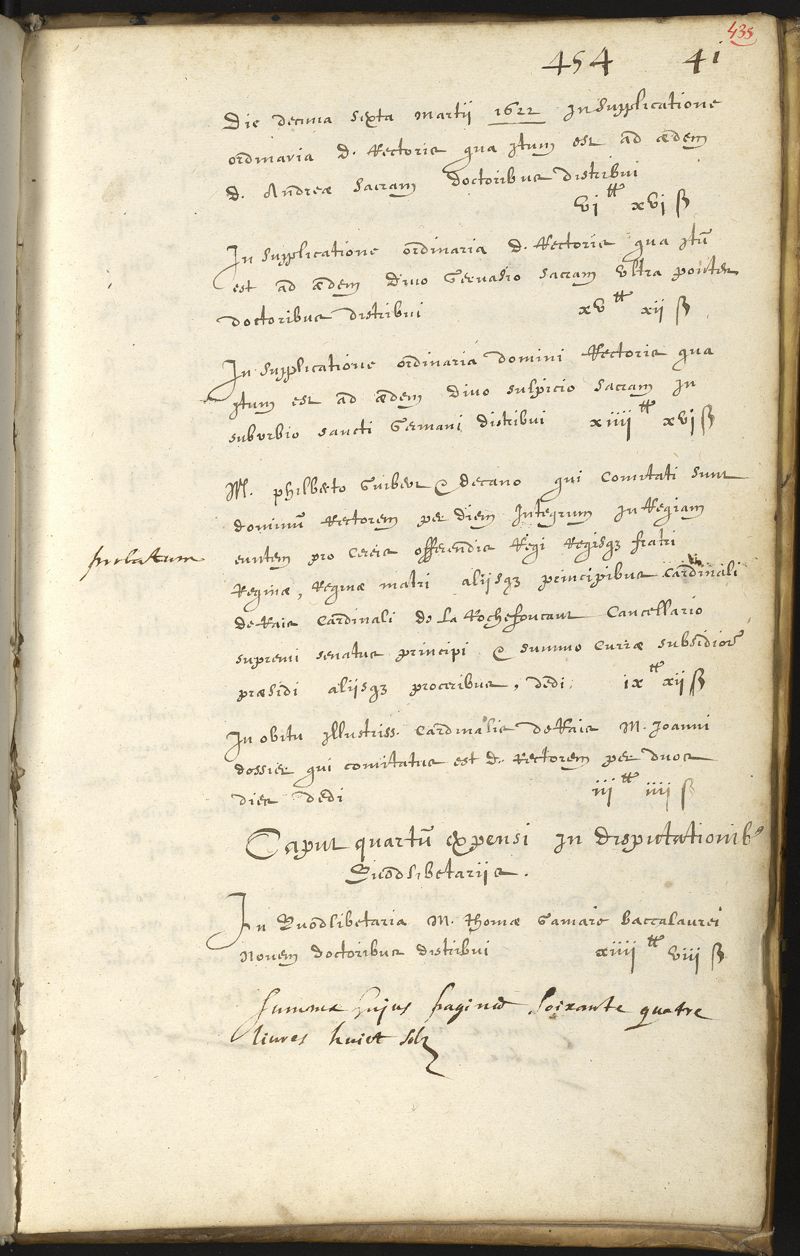 435
454 41
Die decima sexta martii 1622 In supplicatione
ordinaria d. Rectoris qua Itum est ad ædem
d. Andreæ sacram doctoribus distribui
vi tt xvi ß
In supplicatione ordinaria d. Rectoris qua Itū
est ad ædem divo Gervasio sacram vltra pontes
doctoribus distribui xv tt xii ß
In supplicatione ordinaria domini Rectoris qua
Itum est ad ædem divo sulpicio sacram in
suburbio sancti Germani distribui xiiii tt xvi ß
M. philberto Guibert & decano qui Comitati sunt
dominū Rectorem per diem Integrum in Regiam
euntem pro cereis offerendis Regi Regisqꝫ fratri
Reginæ, Reginæ matri aliisqꝫ principibus Cardinali
de Rais Cardinali de La Rochefoucaut Cancellario
supremi senatus principi & summo Curiæ subsidior
præsidi aliisqꝫ proceribus, dedi ix tt xii ß
In obitu Illustriss. Cardinalis de Rais M. Joanni
dossier qui comitatus est d. Rectorem per duos
dies dedi iii tt iiii ß
Caput quartū expensi in disputationib⁹
Quodlibetariis.
In Quodlibetaria M. thomæ Gamare baccalaurei
Novem doctoribus distribui xiiii tt viii ß
summa hujus paginæ soixante quatre
livres huict solz